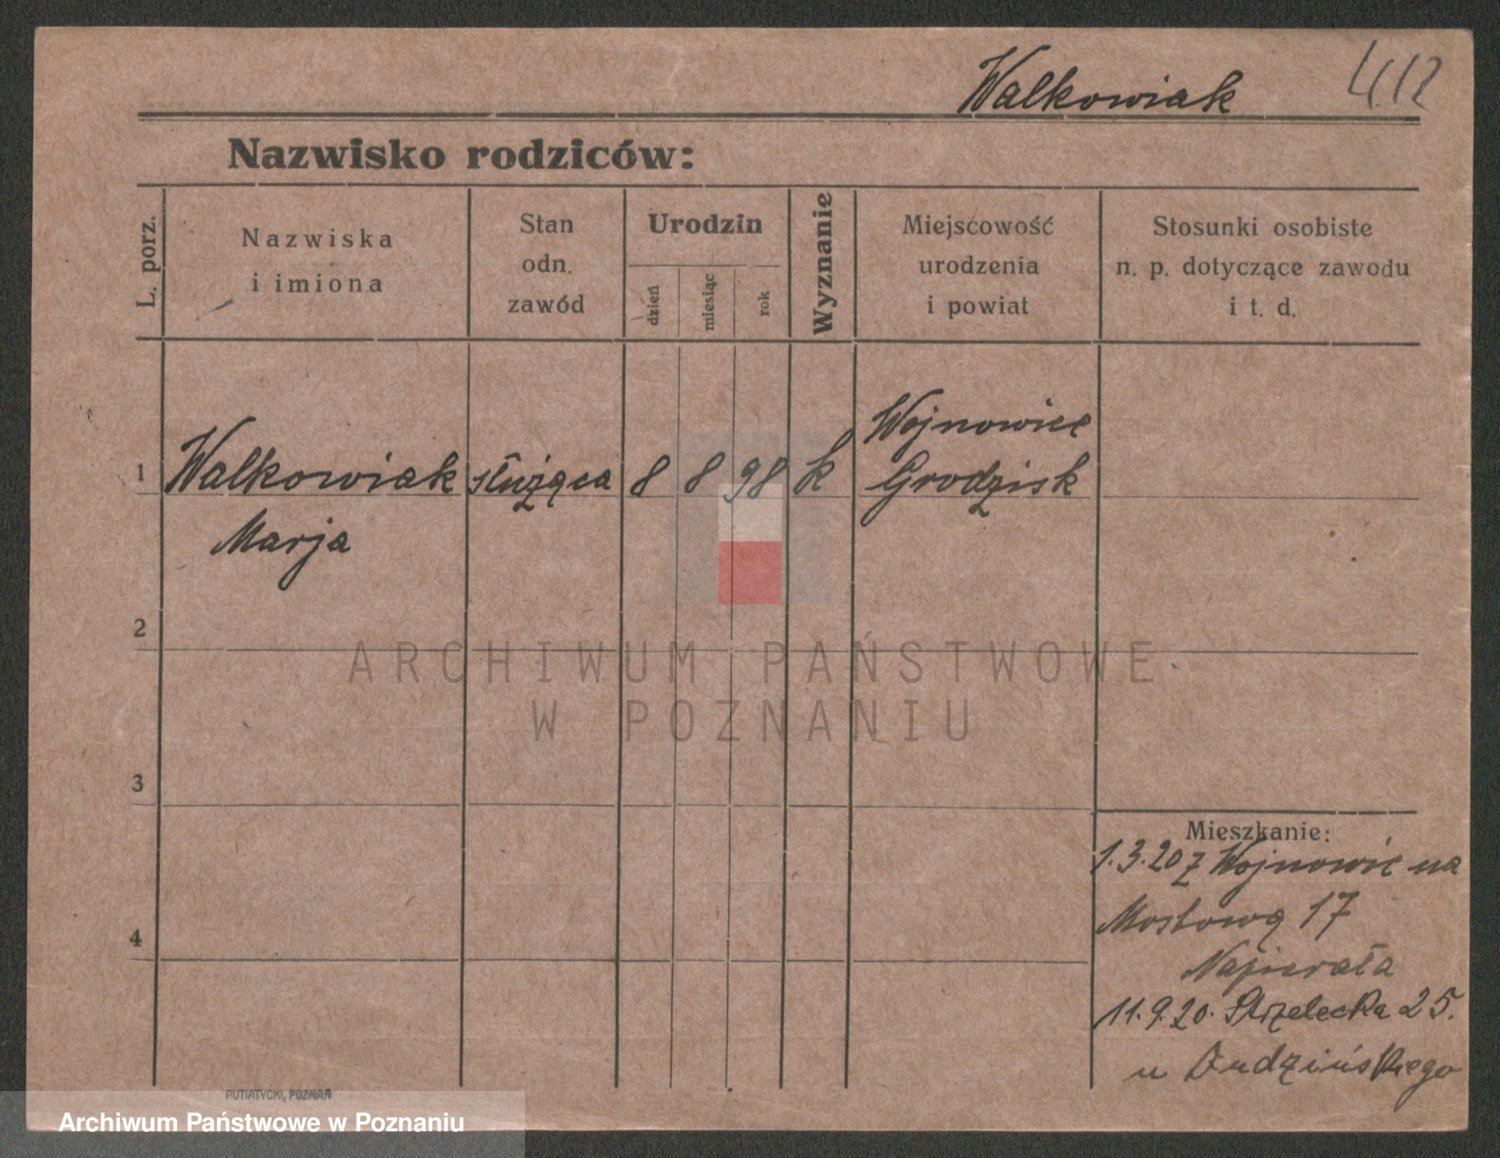 Walkowiak 4.12
Nazwisko rodziców:
L. porz.
Nazwiska
i imiona
Stan
odn.
zawód
Urodzin
dzień
miesiąc
rok
Wyznanie
Miejscowość
urodzenia
i powiat
Stosunki osobiste
n. p. dotyczące zawodu
i t. d.
1 Walkowiak służąca 8 8 98 k Wojnowice
Marja Grodzisk
2
3
4
Mieszkanie:
1.3.20 z Wojnowic na
Mostową 17
Napierała
11.9.20. Strzelecka 25.
u Dudzińskiego
ARCHIWUM PAŃSTWOWE
W POZNANIU
PUTIATYCKI, POZNAŃ
Archiwum Państwowe w Poznaniu